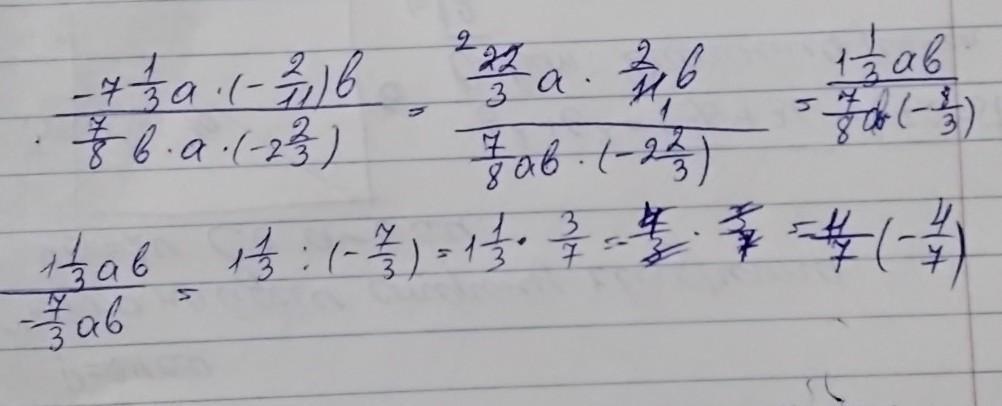 \frac{-7\frac{1}{3}a \cdot (-\frac{2}{11})b}{\frac{7}{8}b \cdot a \cdot (-2\frac{2}{3})} = \frac{\frac{22}{3}a \cdot \frac{2}{11}b}{\frac{7}{8}ab \cdot (-2\frac{2}{3})} = \frac{1\frac{1}{3}ab}{\frac{7}{8}ab(-\frac{8}{3})}
\frac{1\frac{1}{3}ab}{-\frac{7}{3}ab} = 1\frac{1}{3} : (-\frac{7}{3}) = 1\frac{1}{3} \cdot \frac{3}{7} = -\frac{4}{3} \cdot \frac{3}{7} = \frac{4}{7} (-\frac{4}{7})